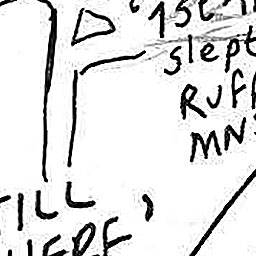 1st
slept
RUFF
MNS
TILL
HERE'